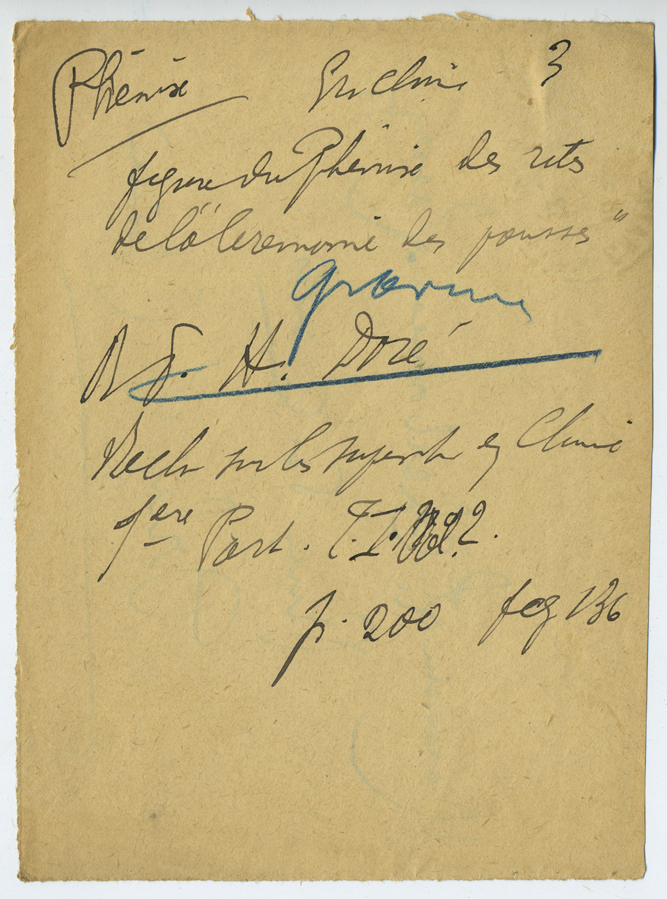 Phénix en Chine 3
figure du Phénix des rites
de la "Ceremonie des pousses"
gravure
R. P. H. Doré
Rech sur les superst en Chine
1ère Part. T. I. N° 2.
p. 200 fig 136